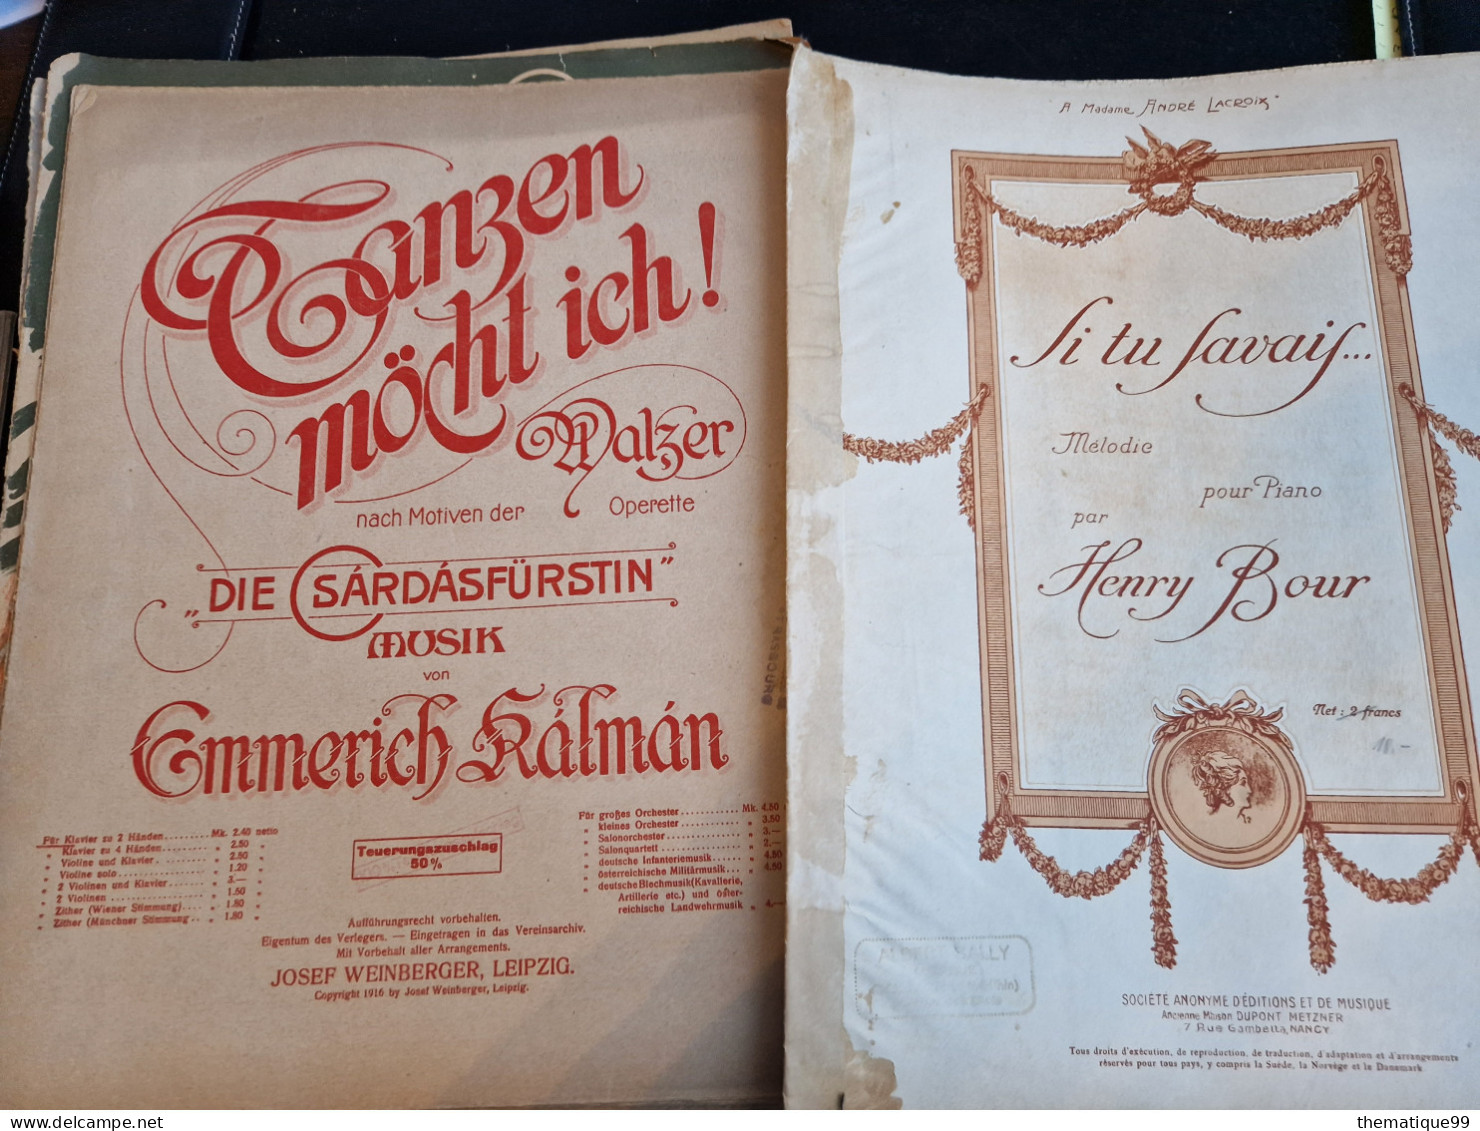 Tanzen
möcht ich!
Walzer
nach Motiven der Operette
„DIE CSÁRDÁSFÜRSTIN"
MUSIK
von
Emmerich Kálmán
Für Klavier zu 2 Händen......... Mk. 2.40 netto
" Klavier zu 4 Händen......... " 2.50 "
" Violine und Klavier......... " 2.50 "
" Violine solo......... " 1.20 "
" 2 Violinen und Klavier....... " 3.— "
" 2 Violinen......... " 1.50 "
" Zither (Wiener Stimmung).... " 1.80 "
" Zither (Münchner Stimmung.. " 1.80 "
Teuerungszuschlag
50%
Für großes Orchester........... Mk. 4.50
" kleines Orchester........... " 3.50
" Salonorchester........... " 3.—
" Salonquartett........... " 2.—
" deutsche Infanteriemusik...... " 4.50
" österreichische Militärmusik... " 4.50
" deutsche Blechmusik (Kavallerie,
Artillerie etc.) und öster-
reichische Landwehrmusik " 4.—
Aufführungsrecht vorbehalten.
Eigentum des Verlegers. — Eingetragen in das Vereinsarchiv.
Mit Vorbehalt aller Arrangements.
JOSEF WEINBERGER, LEIPZIG.
Copyright 1916 by Josef Weinberger, Leipzig.
A Madame ANDRÉ LACROIX
Si tu savais...
Mélodie
pour Piano
par
Henry Bour
Net : 2 francs
10.-
SOCIÉTÉ ANONYME D'ÉDITIONS ET DE MUSIQUE
Ancienne Maison DUPONT METZNER
7 Rue Gambetta, NANCY
Tous droits d'exécution, de reproduction, de traduction, d'adaptation et d'arrangements
réservés pour tous pays, y compris la Suède, la Norvège et le Danemark.
thematique99